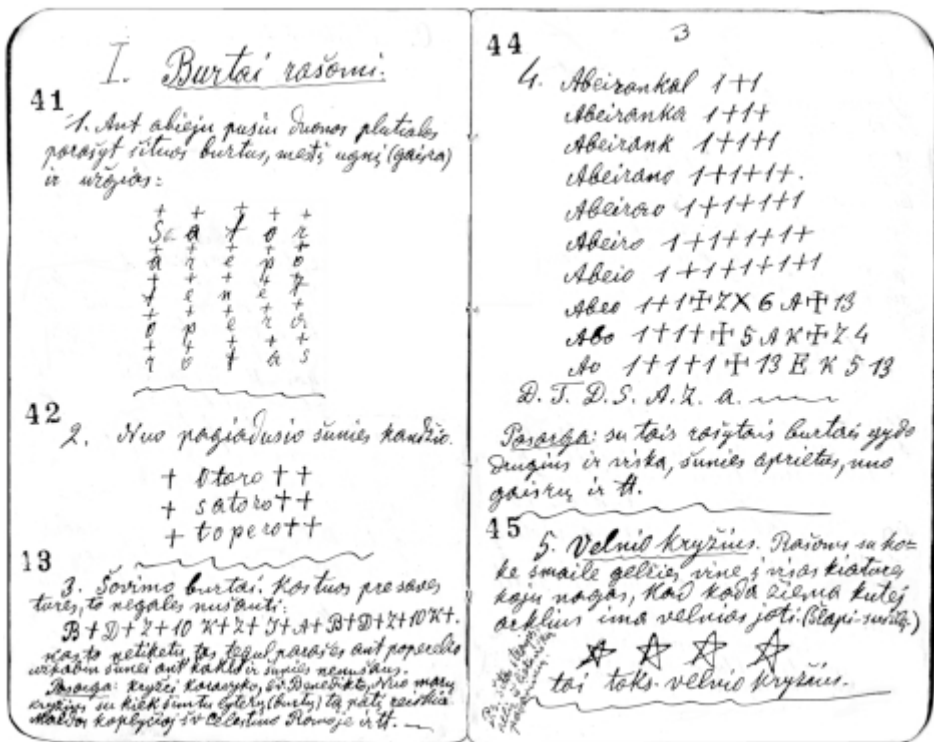 I. Burtai rašomi.
41
1. Ant abieju pusiu duonos plutiales
parašyt šituos burtus, mesti ugnį (gaisra)
ir užgias:
+ + + + +
S a t o r
+ + + + +
a r e p o
+ + + + +
t e n e t
+ + + + +
o p e r a
+ + + + +
r o t a s
42
2. Nuo pagiadusio šunies kandžio.
+ otoro ++
+ satoro ++
+ topero ++
13
3. Šovimo burtai. Kas tuos pre saves
tures, to negales nušauti:
B+D+Z+10 K+Z+J+A+B+D+Z+10K+.
tas tegul parašes ant poperelio
šunei ant kaklo ir šunies nenušaus.
Pasarga: kryžei karavyko, šv. Benedikto, Nuo
kryžius su kiek šuntu lyterų (burtų) tą patį reiškia
Maldos koplyčioj šv. Celestino Romoje ir tt.
3
44
4. Abeirankal 1+1
Abeiranka 1+1+
Abeirank 1+1+1
Abeirano 1+1+1+.
Abeiraro 1+1+1+1
Abeiro 1+1+1+1+
Abeio 1+1+1+1+1
Abeo 1+1✠ZX6A✠13
Abo 1+1+✠5AK✠Z4
Ao 1+1+1✠13EK513
D. T. D. S. A. Z. a.
Pasarga: su tais rašytais burtais gydo
drugius ir viska, šunies aprietus, nuo
gaisrų ir tt.
45
5. Velnio kryžius. Rašoms su ko-
ke smaile geležies vine į visas
koju nagas, kad kada žiema kutej
arklius ima velnias joti. (Slapi-sušilę)
tai toks velnio kryžius.